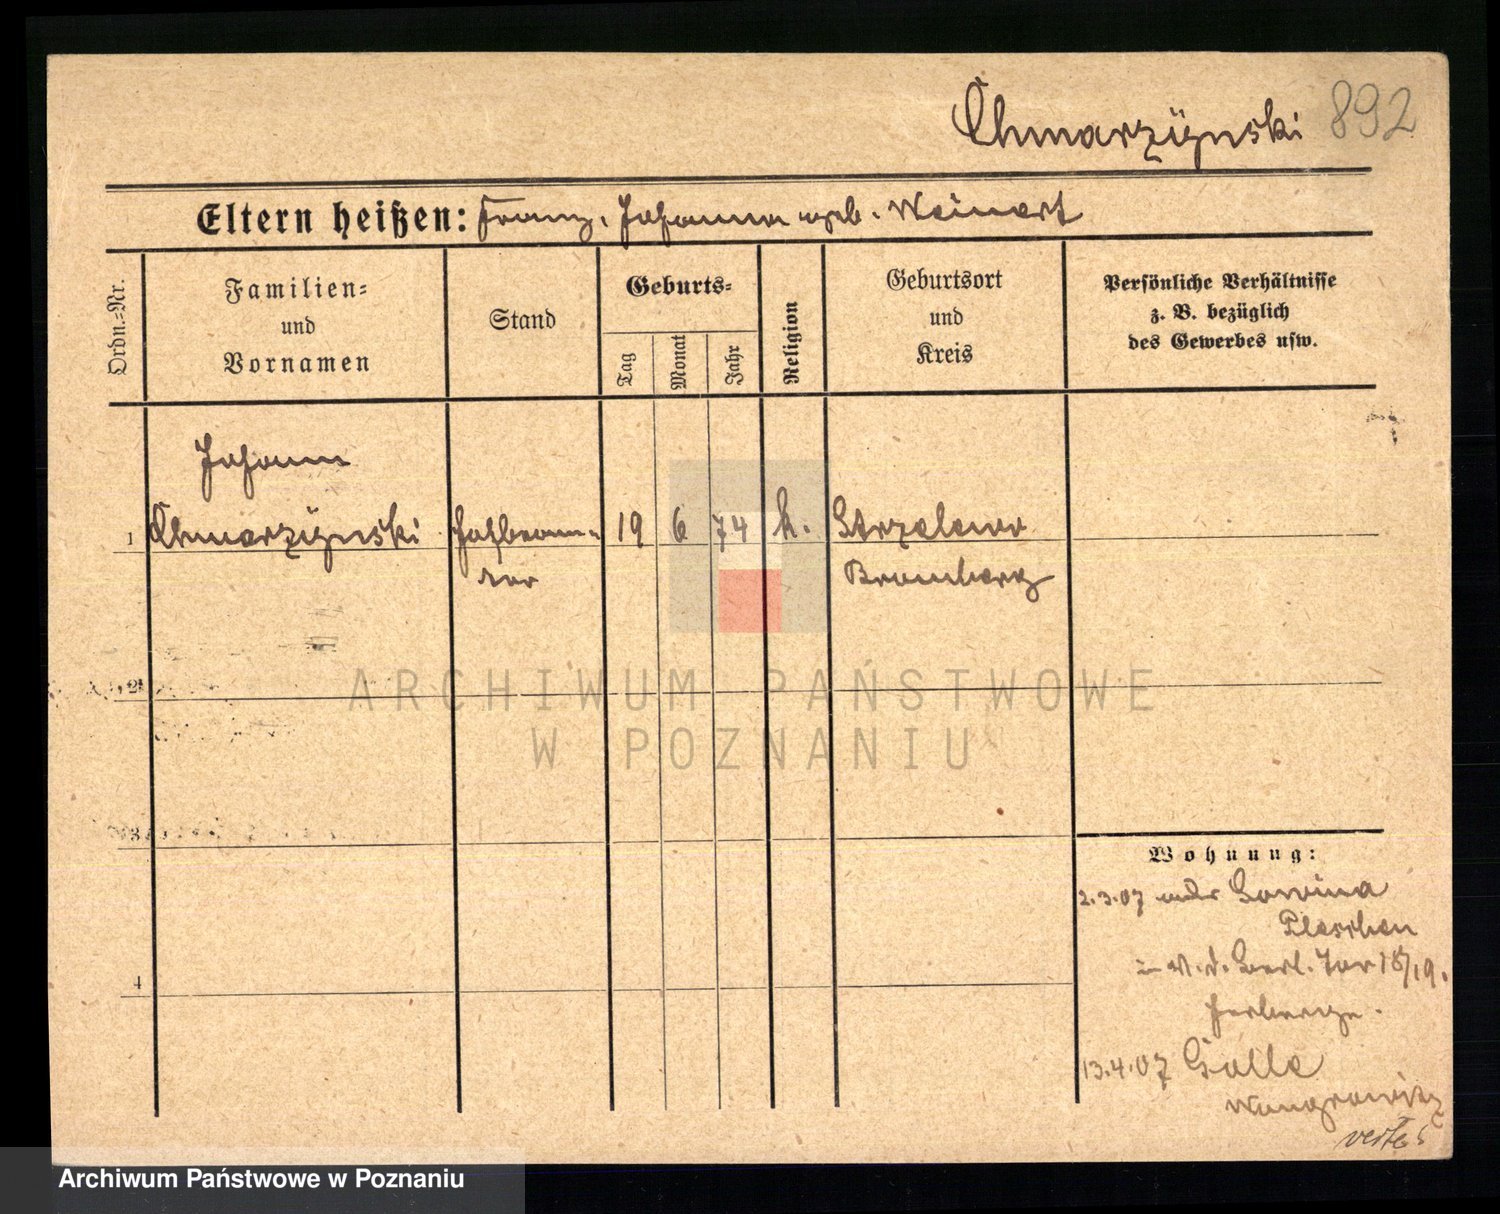 Chmarzÿnski 892
Eltern heißen: Franz, Johanna geb. Weinert
Ordn.-Nr.
Familien-
und
Vornamen
Stand
Geburts-
Tag
Monat
Jahr
Religion
Geburtsort
und
Kreis
Persönliche Verhältnisse
z. B. bezüglich
des Gewerbes usw.
Johann
1 Chmarzÿnski 19 6 74 k. Strzelewo
Bromberg
2
3
4
Wohnung:
2.3.07 Sowina
Pleschen
in W. v. Berl. Tor 18/19.
Herberge.
13.4.07 Golle
Wongrowitz
verte!
ARCHIWUM PAŃSTWOWE
W POZNANIU
Archiwum Państwowe w Poznaniu